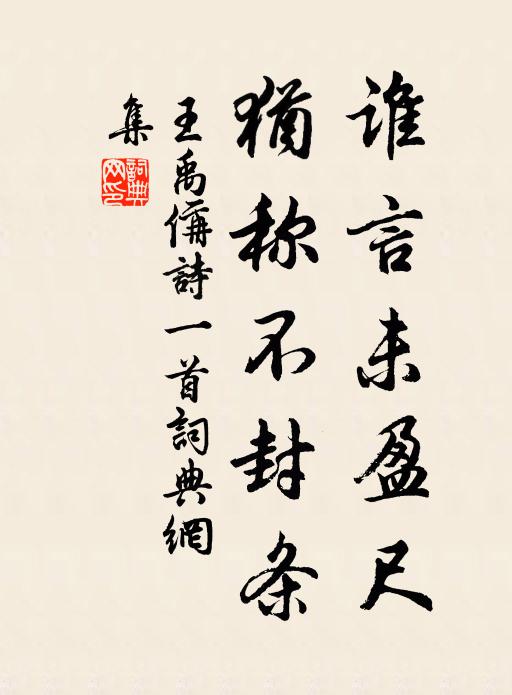 誰言未盈尺
猶称不封条
王禹偁詩一首詞典網
集
詞典
网印